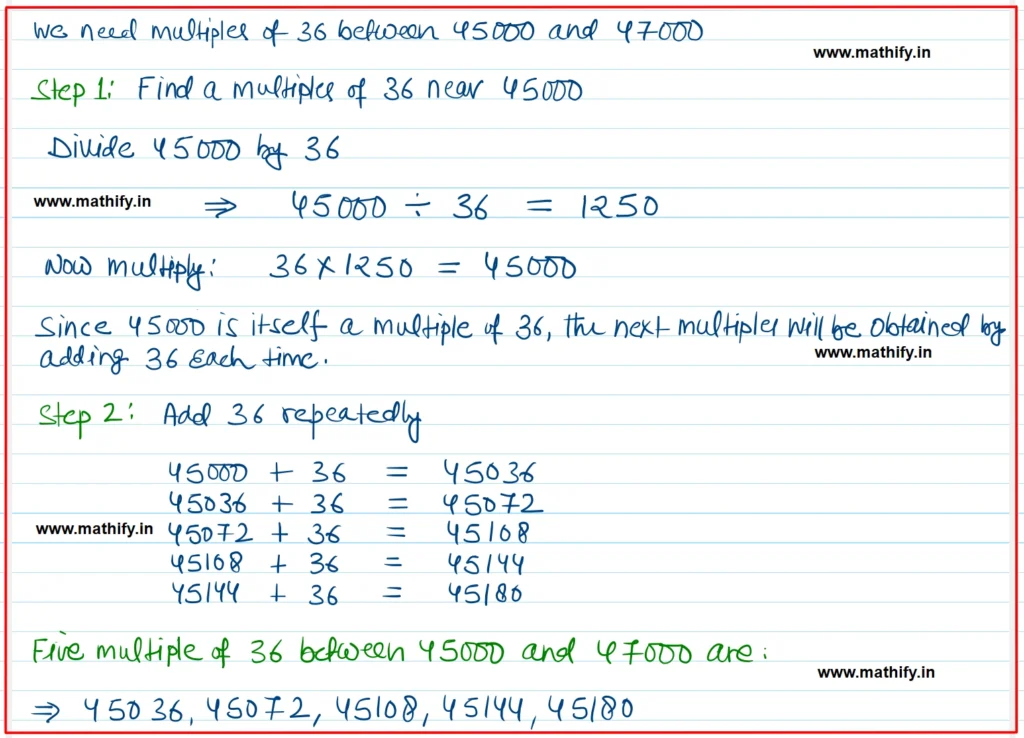 We need multiples of 36 between 45000 and 47000
www.mathify.in
Step 1: Find a multiples of 36 near 45000
Divide 45000 by 36
www.mathify.in ⇒ 45000 ÷ 36 = 1250
Now multiply: 36 × 1250 = 45000
Since 45000 is itself a multiple of 36, the next multiples will be obtained by
adding 36 each time.
www.mathify.in
Step 2: Add 36 repeatedly
45000 + 36 = 45036
45036 + 36 = 45072
www.mathify.in 45072 + 36 = 45108
45108 + 36 = 45144
45144 + 36 = 45180
Five multiple of 36 between 45000 and 47000 are:
www.mathify.in
⇒ 45036, 45072, 45108, 45144, 45180